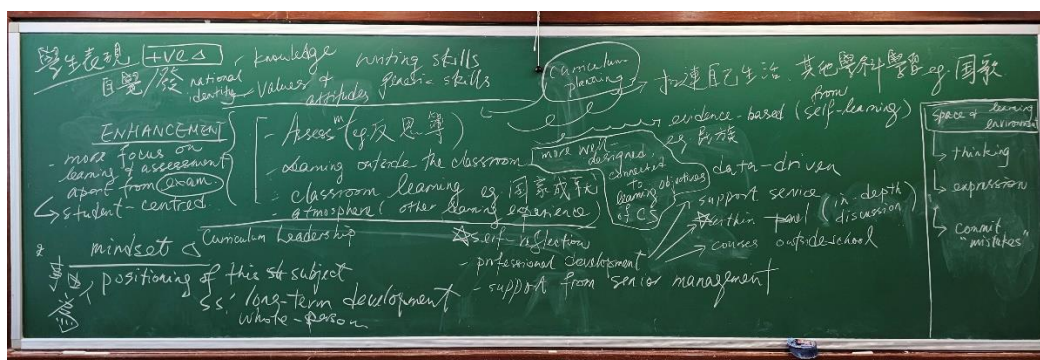 學生表現 +ve Δ
自覺/發
knowledge writing skills
national identity values & attitudes generic skills
curriculum planning
扣連自己生活、其他學科學習 eg. 国歌
from
evidence-based (self-learning)
eg. 民族
data-driven
ENHANCEMENT
- more focus on
learning & assessment
apart from exam
→ student-centred
- Assess^m (eg. 反思單)
- learning outside the classroom
- classroom learning eg. 国家成就
- atmosphere (other learning experience)
more well-designed,
connected
to
learning objectives
of CS
support service
within panel (in-depth discussion)
courses outside school
mindset Δ
Curriculum Leadership
- positioning of this subject
SS: long-term development
whole-person
☆ self-reflection
- professional development
- support from senior management
space & learning environment
→ thinking
→ expression
→ commit
"mistakes"